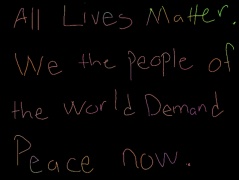 All Lives Matter.
We the people of
the world Demand
Peace now.